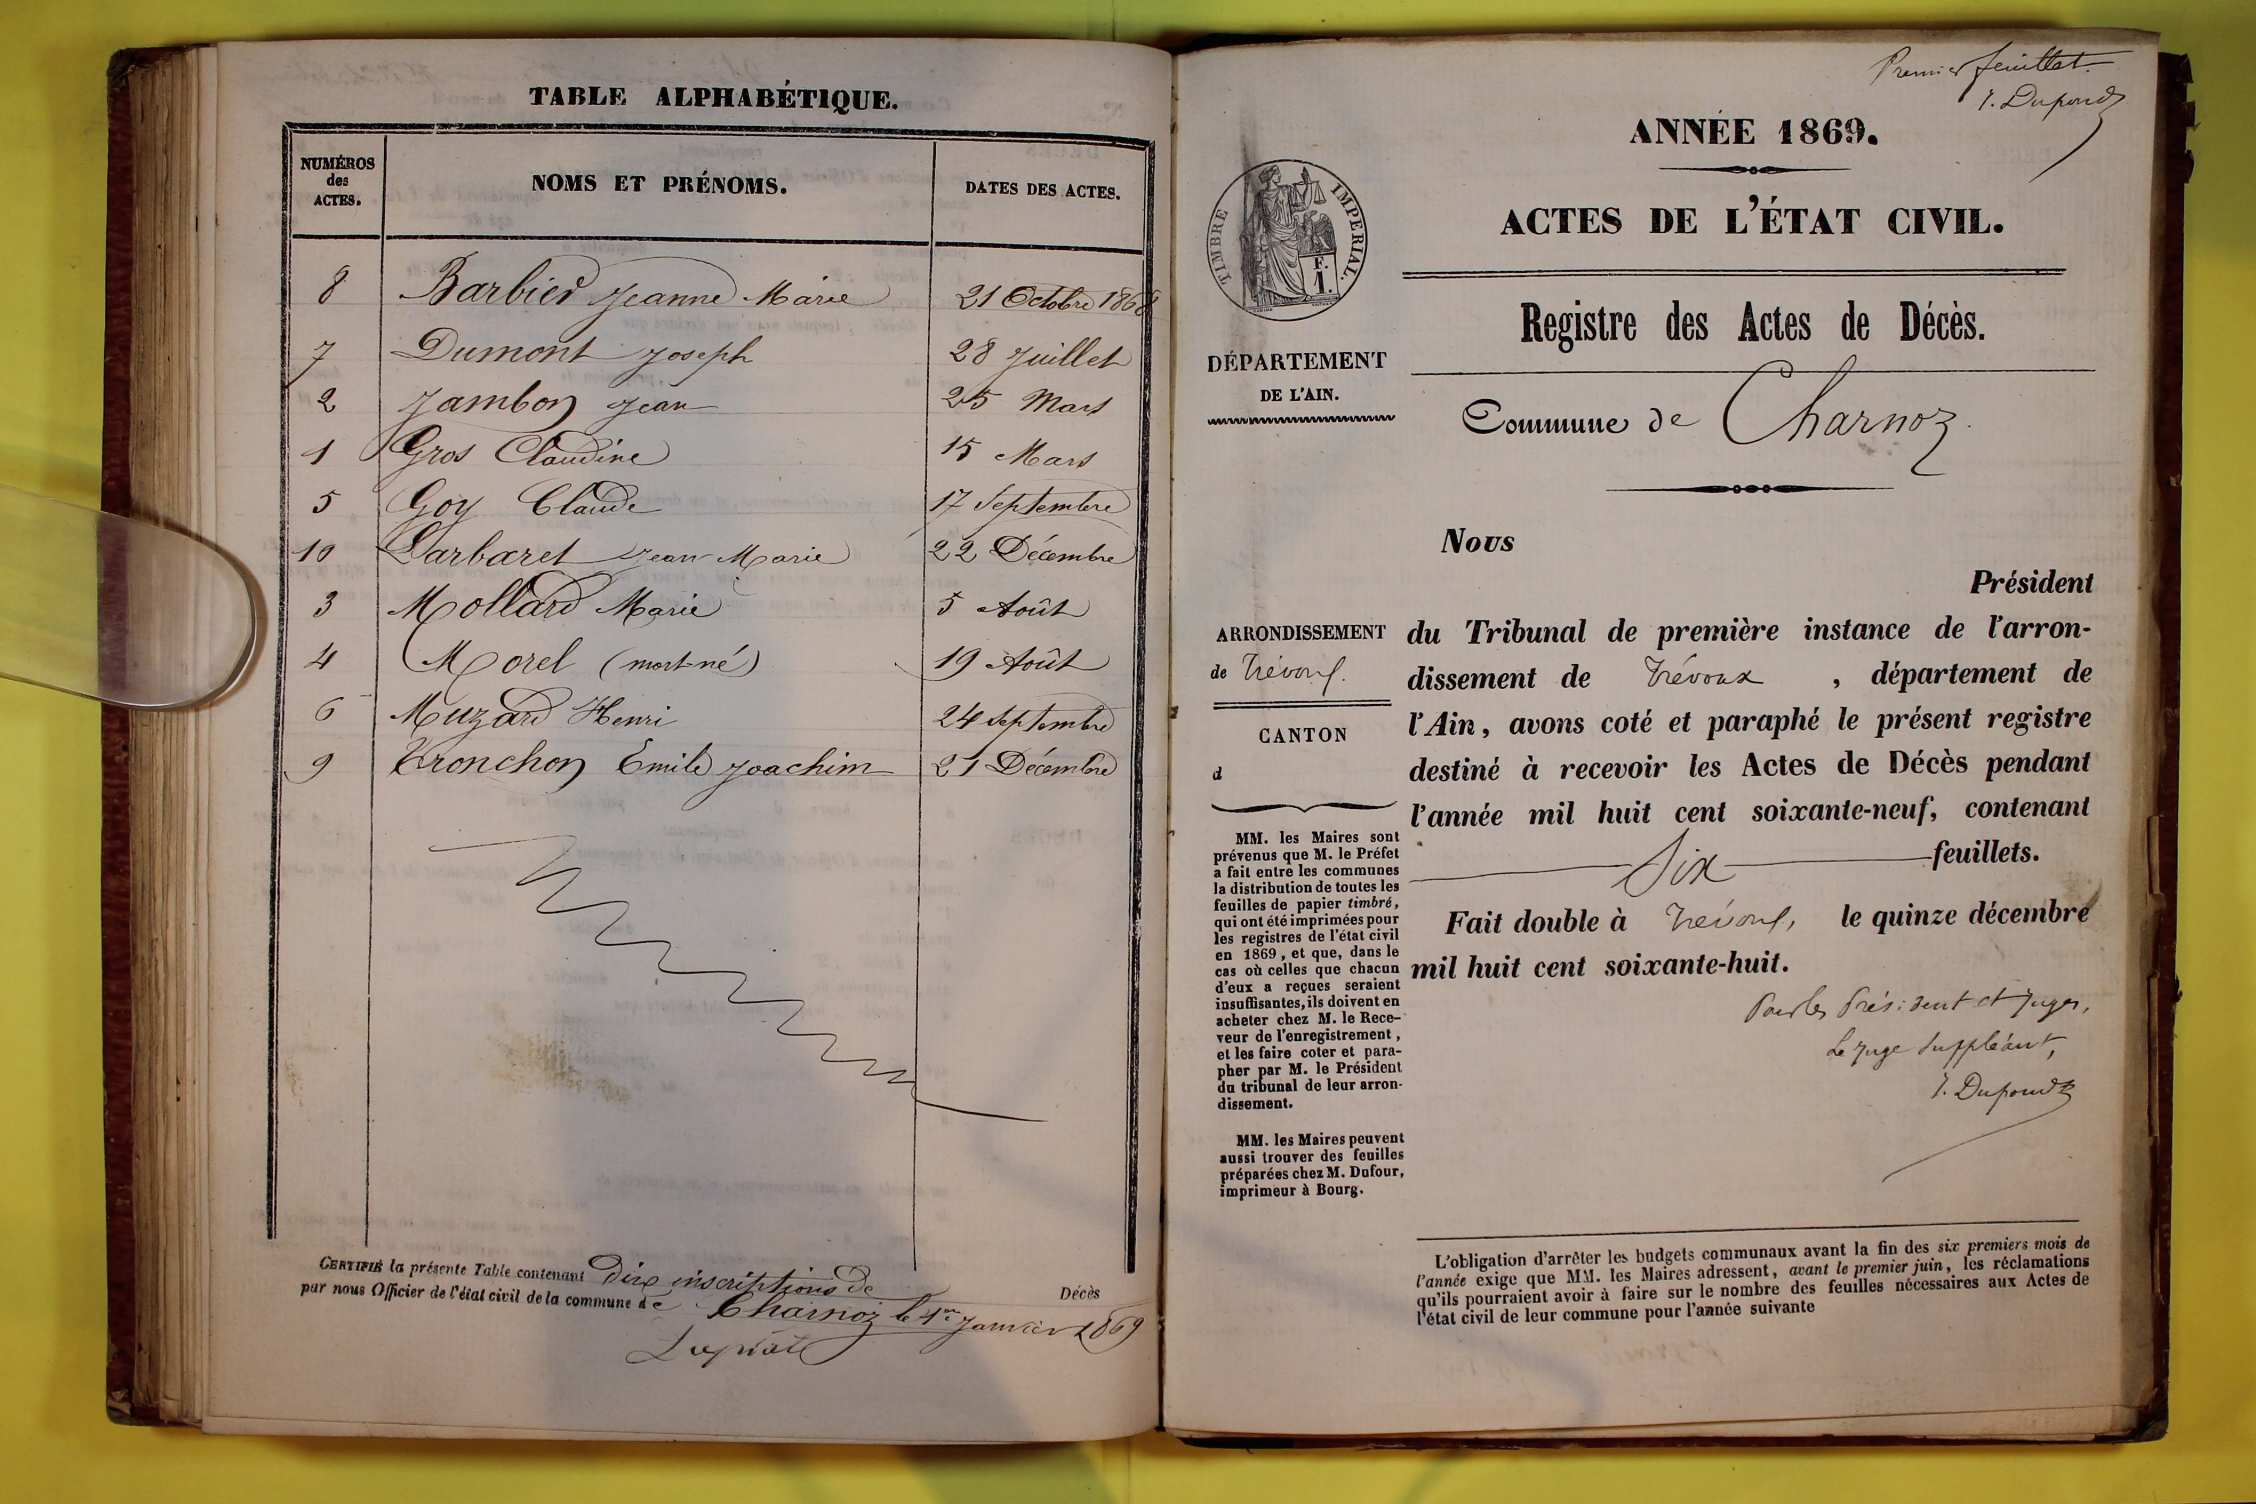 TABLE ALPHABÉTIQUE.
NUMÉROS
des
ACTES.
NOMS ET PRÉNOMS.
DATES DES ACTES.
8 Barbier Jeanne Marie 21 Octobre 1868
7 Dumont Joseph 28 Juillet
2 Jambon Jean 25 Mars
1 Gros Claudine 15 Mars
5 Goy Claude 17 Septembre
10 Larbaret Jean Marie 22 Décembre
3 Mollard Marie 5 Août
4 Morel (mort-né) 19 Août
6 Muzard Henri 24 Septembre
9 Tronchon Emile Joachim 21 Décembre
CERTIFIÉ la présente Table contenant dix inscriptions de Décès
par nous Officier de l'état civil de la commune de Charnoz le 1er Janvier 1869
Premier feuillet.
J. Dupond
ANNÉE 1869.
ACTES DE L'ÉTAT CIVIL.
TIMBRE IMPERIAL.
F.
1.
Registre des Actes de Décès.
DÉPARTEMENT
DE L'AIN.
Commune de Charnoz.
Nous
Président
du Tribunal de première instance de l'arron-
dissement de Trévoux, département de
l'Ain, avons coté et paraphé le présent registre
destiné à recevoir les Actes de Décès pendant
l'année mil huit cent soixante-neuf, contenant
Six feuillets.
Fait double à Trévoux, le quinze décembre
mil huit cent soixante-huit.
Pour les Président et Juges,
Le Juge Suppléant,
J. Dupond
ARRONDISSEMENT
de Trévoux.
CANTON
d
MM. les Maires sont
prévenus que M. le Préfet
a fait entre les communes
la distribution de toutes les
feuilles de papier timbré,
qui ont été imprimées pour
les registres de l'état civil
en 1869, et que, dans le
cas où celles que chacun
d'eux a reçues seraient
insuffisantes, ils doivent en
acheter chez M. le Rece-
veur de l'enregistrement,
et les faire coter et para-
pher par M. le Président
du tribunal de leur arron-
dissement.
MM. les Maires peuvent
aussi trouver des feuilles
préparées chez M. Dufour,
imprimeur à Bourg.
L'obligation d'arrêter les budgets communaux avant la fin des six premiers mois de
l'année exige que MM. les Maires adressent, avant le premier juin, les réclamations
qu'ils pourraient avoir à faire sur le nombre des feuilles nécessaires aux Actes de
l'état civil de leur commune pour l'année suivante